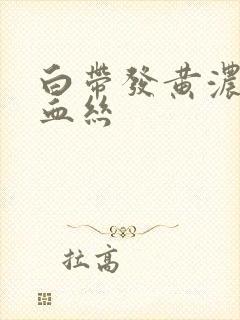 白帶發黃濃
血絲
拉高